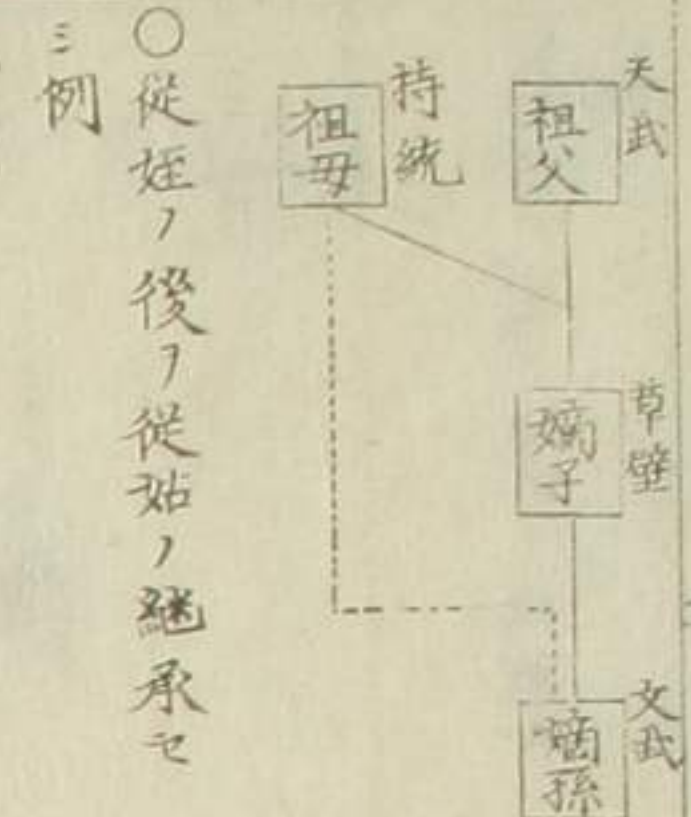 天武
祖父
草壁
嫡子
文武
嫡孫
持統
祖母
〇從姪ノ後ヲ從姑ノ継承セ
ミ例